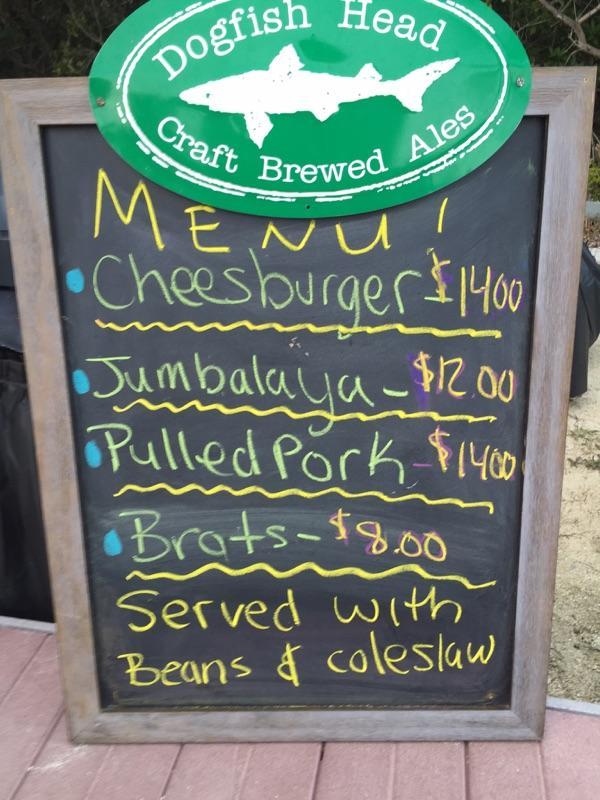 Dogfish Head
Craft Brewed Ales
MENU!
Cheesburger - $1400
Jumbalaya - $12.00
Pulled Pork - $1400
Brats - $8.00
Served with
Beans & coleslaw